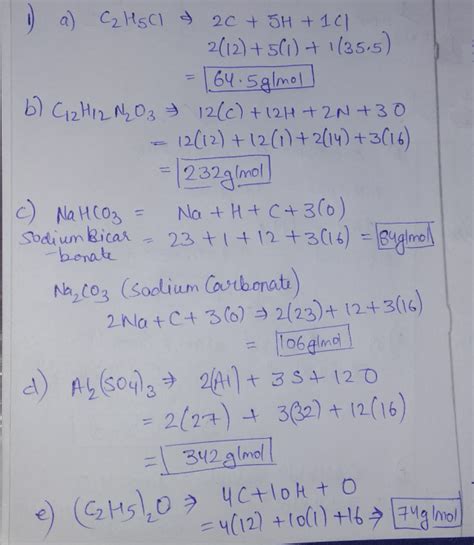 1) a) C2H5Cl ⇒ 2C + 5H + 1Cl
2(12) + 5(1) + 1(35.5)
= 64.5g/mol
b) C12H12N2O3 ⇒ 12(C) + 12H + 2N + 3O
= 12(12) + 12(1) + 2(14) + 3(16)
= 232g/mol
c) NaHCO3 = Na + H + C + 3(O)
Sodium Bicar = 23 + 1 + 12 + 3(16) = 84g/mol
-bonate
Na2CO3 (Sodium Carbonate)
2Na + C + 3(O) ⇒ 2(23) + 12 + 3(16)
= 106g/mol
d) Al2(SO4)3 ⇒ 2(Al) + 3S + 12O
= 2(27) + 3(32) + 12(16)
= 342g/mol
e) (C2H5)2O ⇒ 4C + 10H + O
= 4(12) + 10(1) + 16 ⇒ 74g/mol